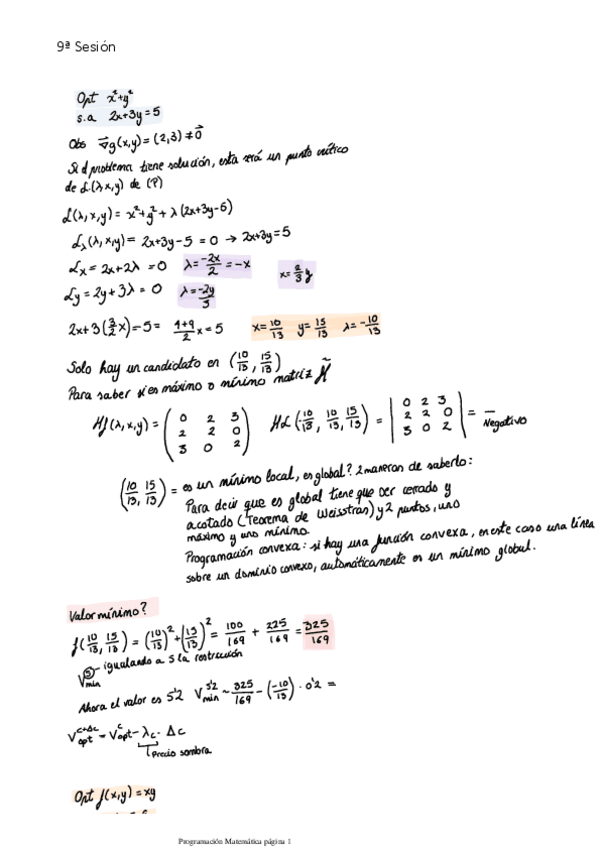 9ª Sesión
Opt x²+y²
s.a. 2x+3y=5
Obs ∇g(x,y)=(2,3)≠0
Si el problema tiene solución, esta será un punto crítico
de L(λ,x,y) de (P)
L(λ,x,y)= x²+y²+λ(2x+3y-5)
Lλ(λ,x,y)= 2x+3y-5=0 → 2x+3y=5
Lx=2x+2λ=0 λ=-2x/2=-x x=2/3 y
Ly=2y+3λ=0 λ=-2y/3
2x+3(3/2 x)-5= (4+9)/2 x=5 x=10/13 y=15/13 λ=-10/13
Solo hay un candidato en (10/13, 15/13)
Para saber si es máximo o mínimo matriz H̃
Hf(λ,x,y)= (0 2 3; 2 2 0; 3 0 2) HL(-10/13, 10/13, 15/13)= |0 2 3; 2 2 0; 3 0 2| = – Negativo
(10/13, 15/13) = es un mínimo local, es global? 2 maneras de saberlo:
Para decir que es global tiene que ser cerrado y
acotado (Teorema de Weisstras) y 2 puntos, uno
máximo y uno mínimo.
Programación convexa: si hay una función convexa, en este caso una línea
sobre un dominio convexo, automáticamente es un mínimo global.
Valor mínimo?
f(10/13, 15/13)=(10/13)²+(15/13)²=100/169 + 225/169 = 325/169
V⁵min igualando a 5 la restricción
Ahora el valor es 5'2 V⁵'²min ~ 325/169 - (-10/13) · 0'2 =
V^(c+Δc)opt ~ V^c opt - λc · Δc
Precio sombra
Opt f(x,y)=xy
Programación Matemática página 1